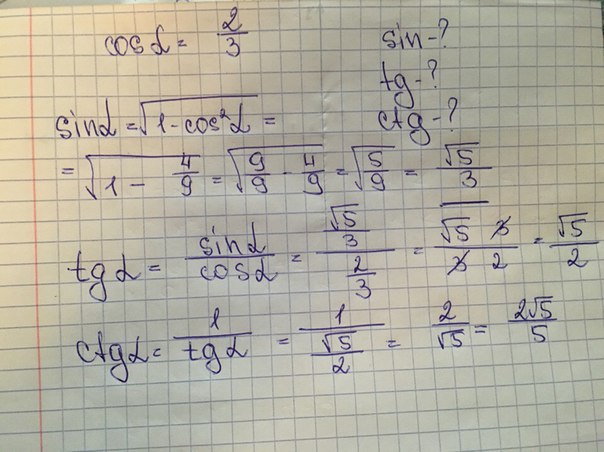 cos α = 2/3 sin - ?
tg - ?
ctg - ?
sin α = √(1 - cos²α) =
= √(1 - 4/9) = √(9/9 - 4/9) = √(5/9) = √5/3
tg α = sin α/cos α = (√5/3)/(2/3) = (√5 3)/(3 2) = √5/2
ctg α = 1/tg α = 1/(√5/2) = 2/√5 = 2√5/5